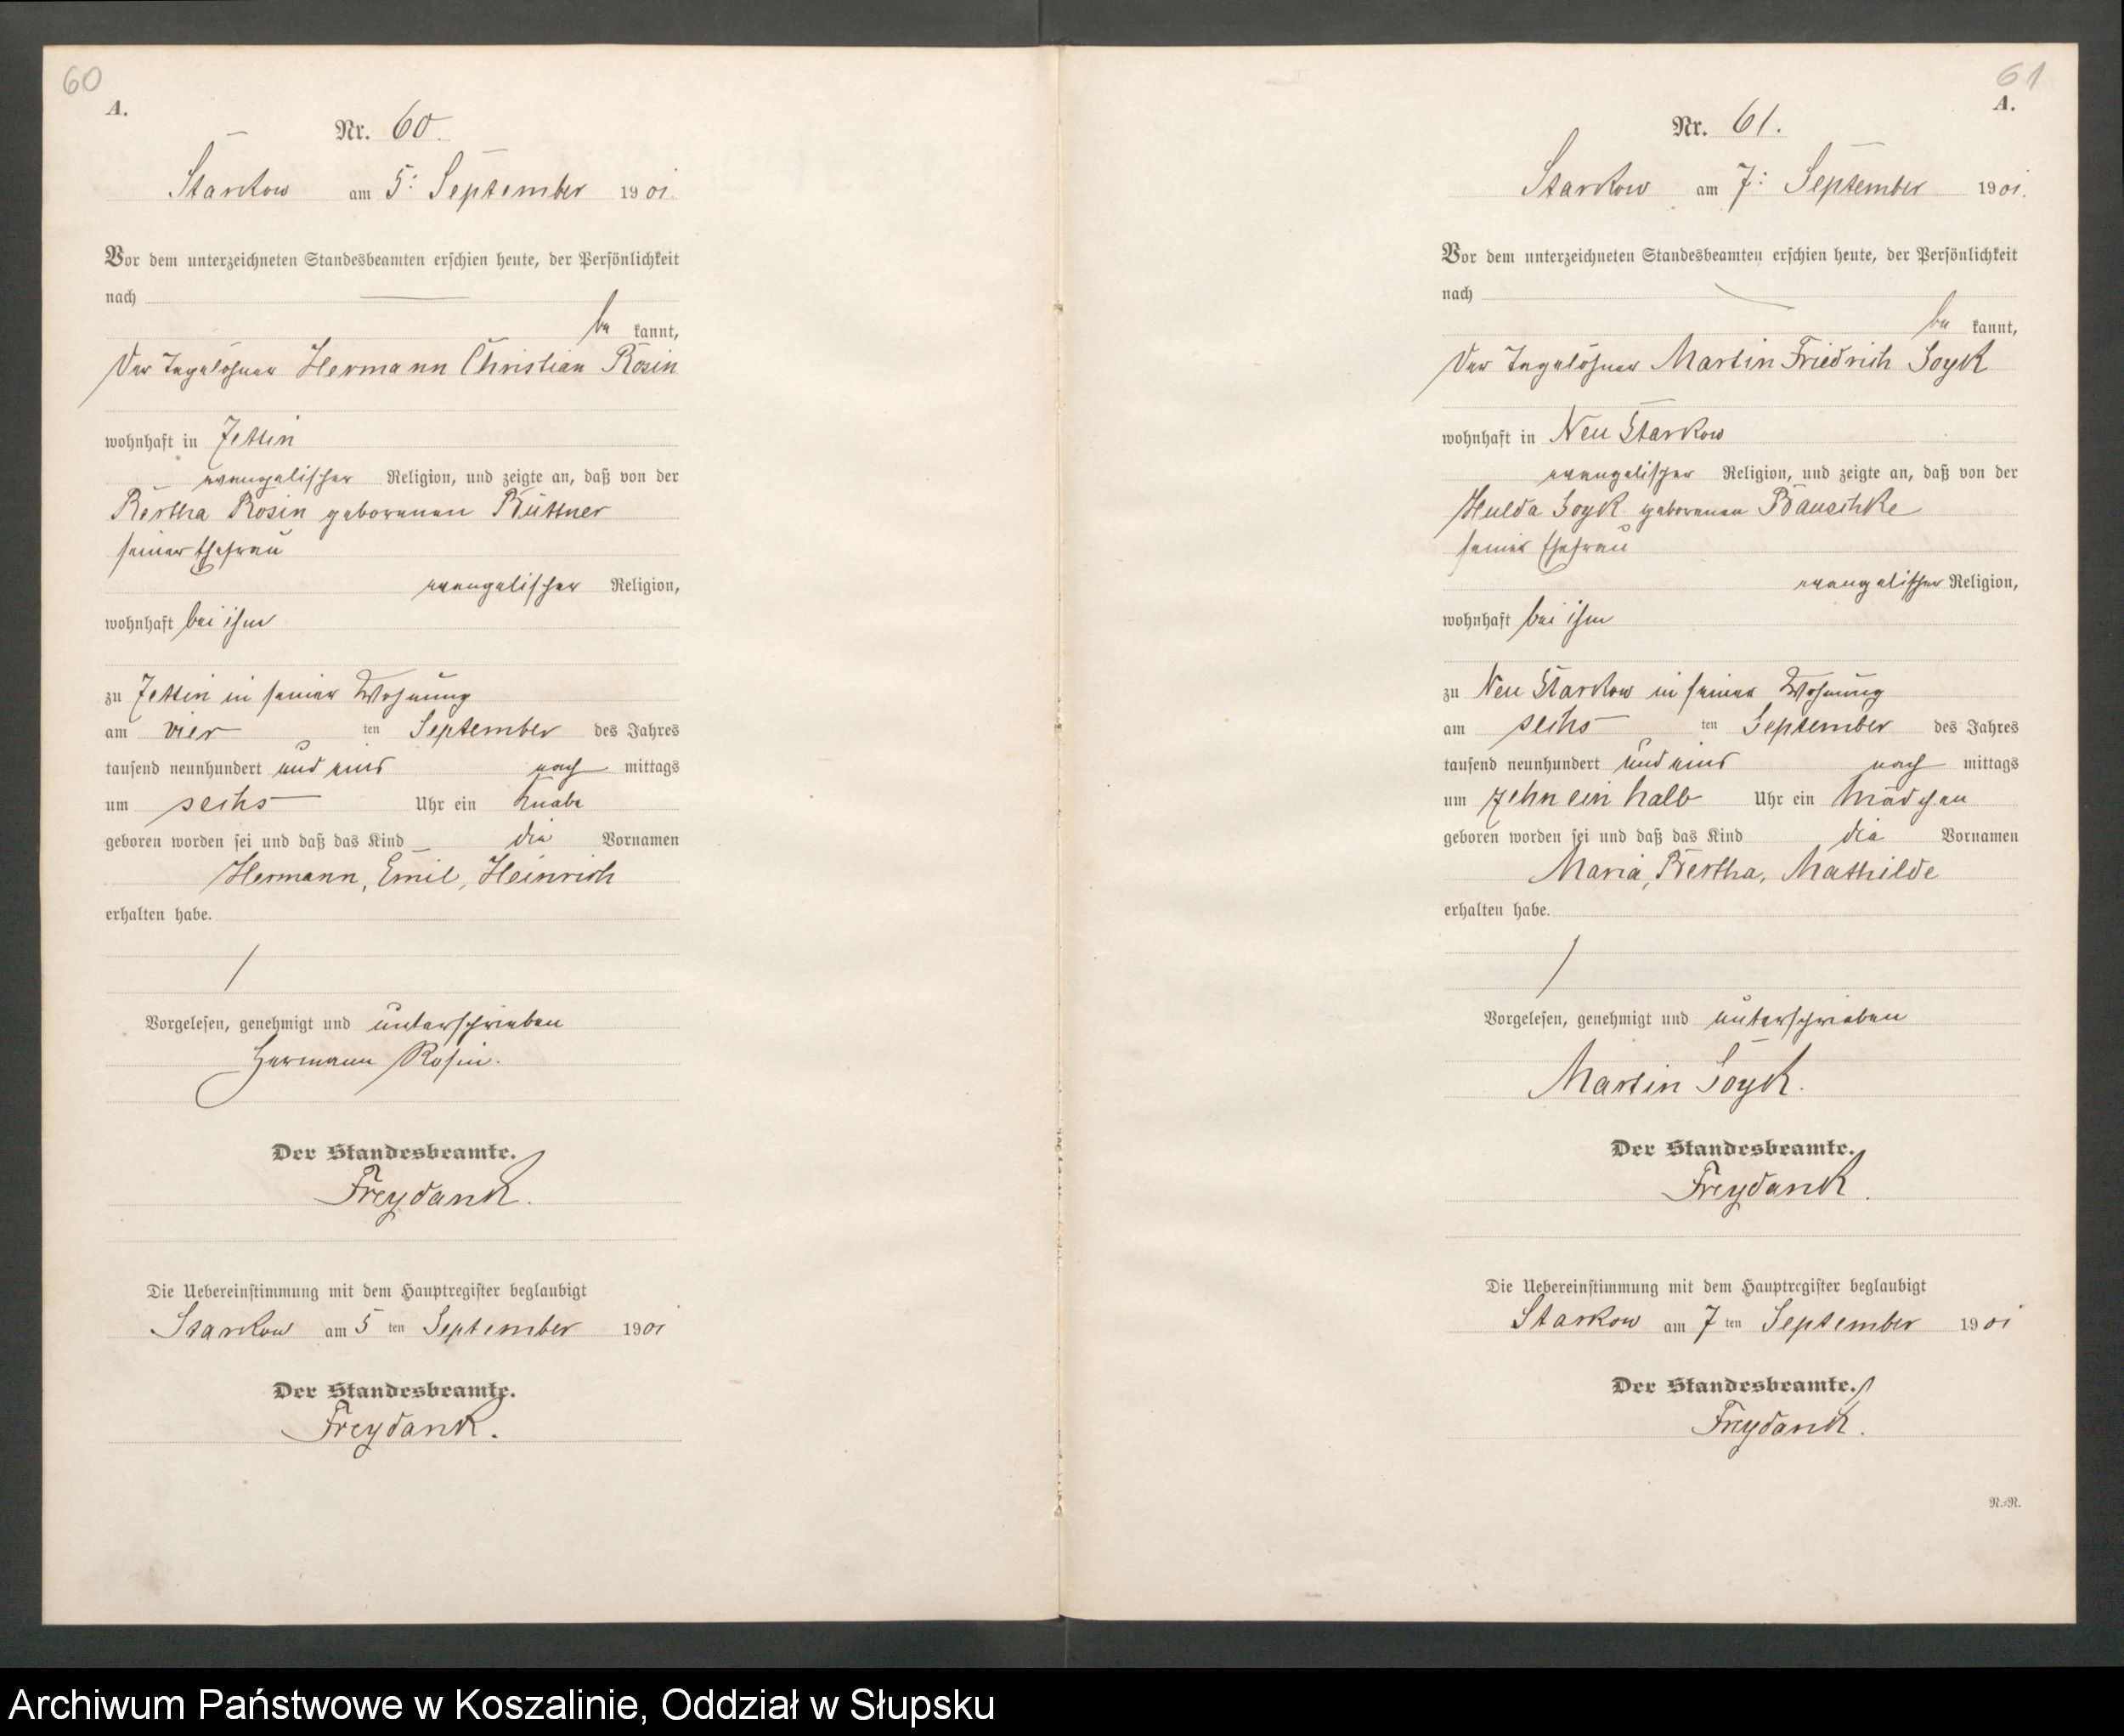 60
A.
Nr. 60.
Starkow am 5: September 1901.
Vor dem unterzeichneten Standesbeamten erschien heute, der Persönlichkeit
nach
be kannt,
der Tagelöhner Hermann Christian Rosin
wohnhaft in Jettin
evangelischer Religion, und zeigte an, daß von der
Bertha Rosin geborenen Büttner
seiner Ehefrau
evangelischer Religion,
wohnhaft bei ihm
zu Jettin in seiner Wohnung
am vier ten September des Jahres
tausend neunhundert und eins nach mittags
um sechs Uhr ein Knabe
geboren worden sei und daß das Kind die Vornamen
Hermann, Emil, Heinrich
erhalten habe.
Vorgelesen, genehmigt und unterschrieben
Hermann Rosin.
Der Standesbeamte.
Freydank.
Die Uebereinstimmung mit dem Hauptregister beglaubigt
Starkow am 5 ten September 1901
Der Standesbeamte.
Freydank.
61
A.
Nr. 61.
Starkow am 7: September 1901.
Vor dem unterzeichneten Standesbeamten erschien heute, der Persönlichkeit
nach
be kannt,
der Tagelöhner Martin Friedrich Soyk
wohnhaft in Neu Starkow
evangelischer Religion, und zeigte an, daß von der
Hulda Soyk geborenen Bauschke
seiner Ehefrau
evangelischer Religion,
wohnhaft bei ihm
zu Neu Starkow in seiner Wohnung
am sechs ten September des Jahres
tausend neunhundert und eins nach mittags
um zehn ein halb Uhr ein Mädchen
geboren worden sei und daß das Kind die Vornamen
Maria, Bertha, Mathilde
erhalten habe.
Vorgelesen, genehmigt und unterschrieben
Martin Soyk.
Der Standesbeamte.
Freydank.
Die Uebereinstimmung mit dem Hauptregister beglaubigt
Starkow am 7 ten September 1901
Der Standesbeamte.
Freydank.
N.-N.
Archiwum Państwowe w Koszalinie, Oddział w Słupsku